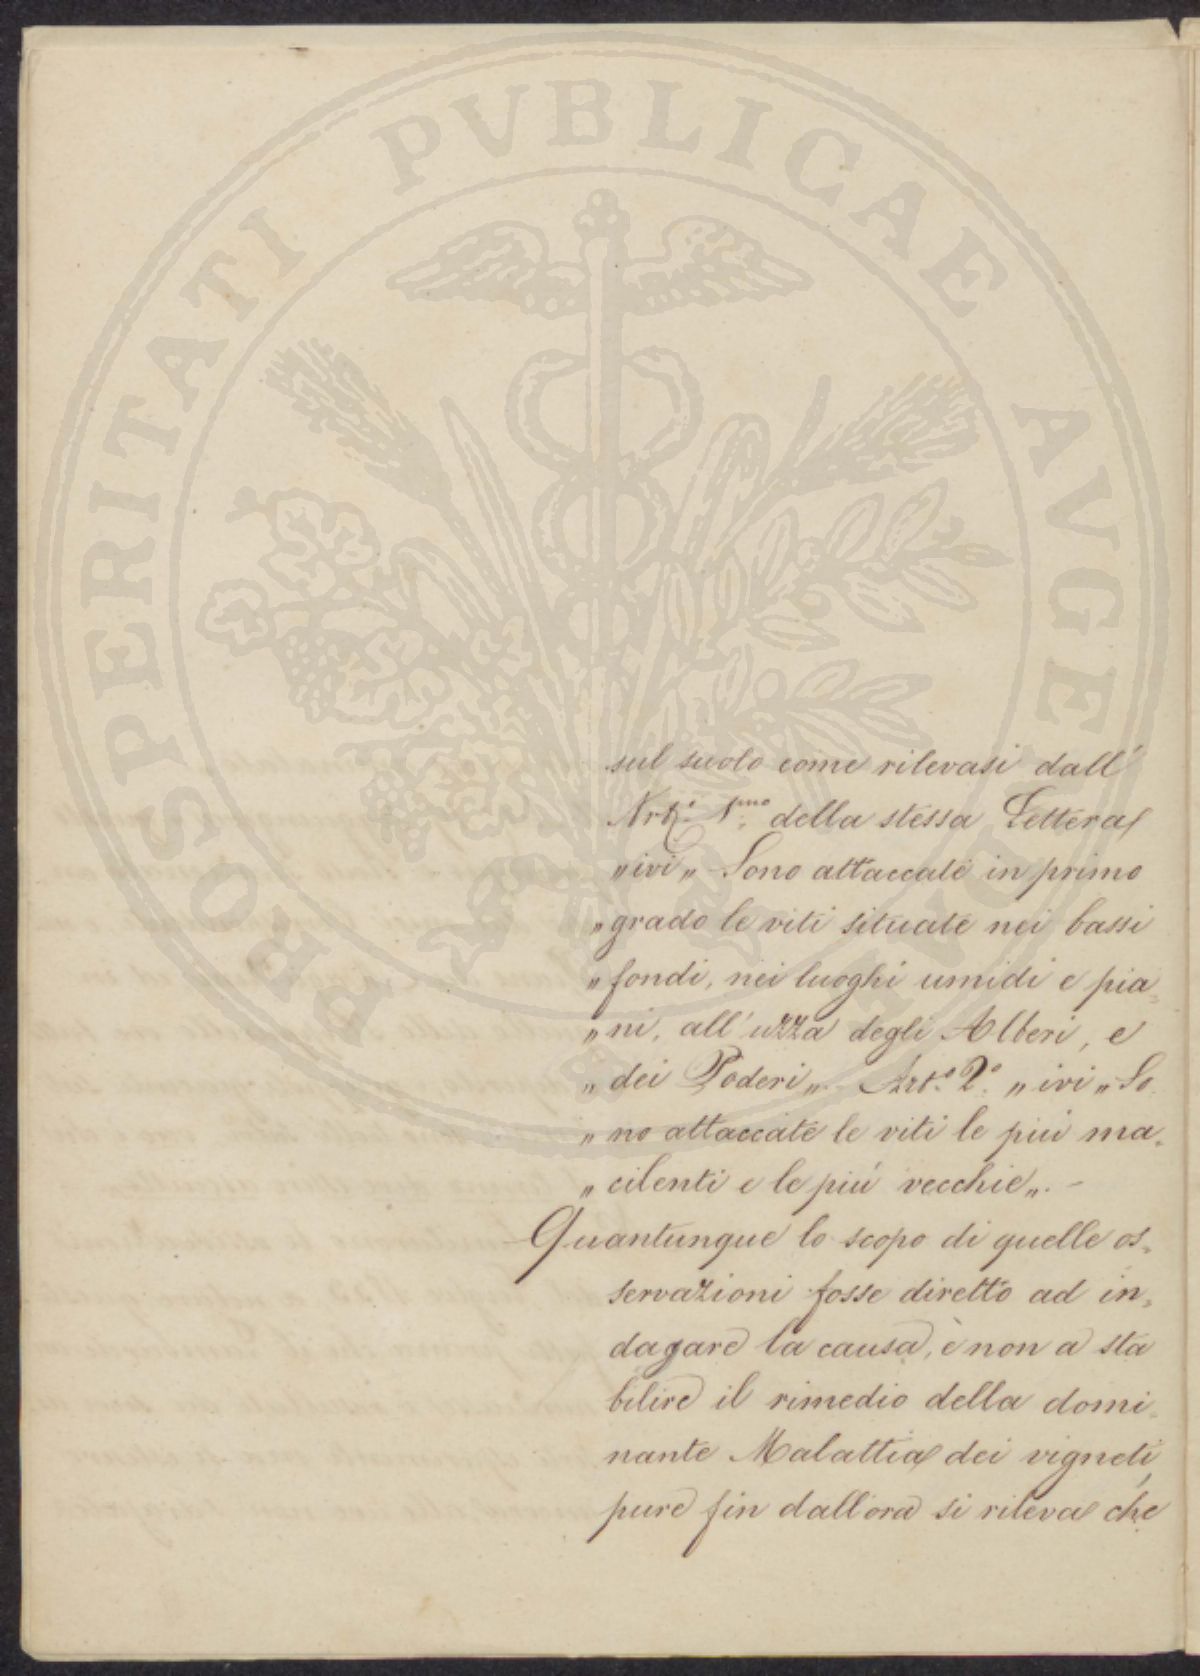 PROSPERITATI PVBLICAE AVGENDAE
sul suolo come rilevasi dall'
Art.º 1.mo della stessa Lettera
„ivi„ Sono attaccate in primo
„grado le viti situate nei bassi
„fondi, nei luoghi umidi e pia„
„ni, all'uzza degli Alberi, e
„dei Poderi„. Art.º 2.º „ivi„ So
„no attaccate le viti le più ma„
„cilenti e le più vecchie„. -
Quantunque lo scopo di quelle os„
servazioni fosse diretto ad in„
dagare la causa, e non a sta
bilire il rimedio della domi
nante Malattia dei vigneti,
pure fin dall'ora si rileva che